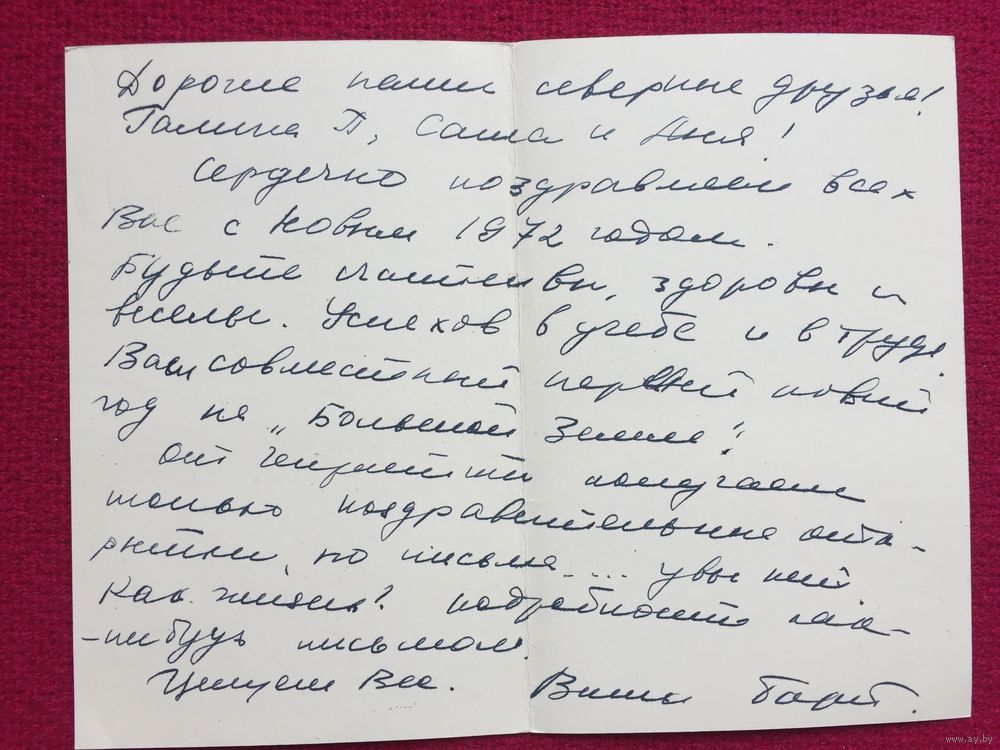 Дорогие наши северные друзья!
Галина П, Саша и Аня!
Сердечно поздравляем всех
Вас с Новым 1972 годом.
Будьте счастливы, здоровы и
веселы. Успехов в учебе и в труде.
Ваш совместный первый новый
год на „Большой Земле“!
От получаем
только поздравительные отк-
рытки, но письма.... увы нет
Как жизнь? подробности как-
-нибудь письмом.
Целуем Вас. Ваши
www.ay.by